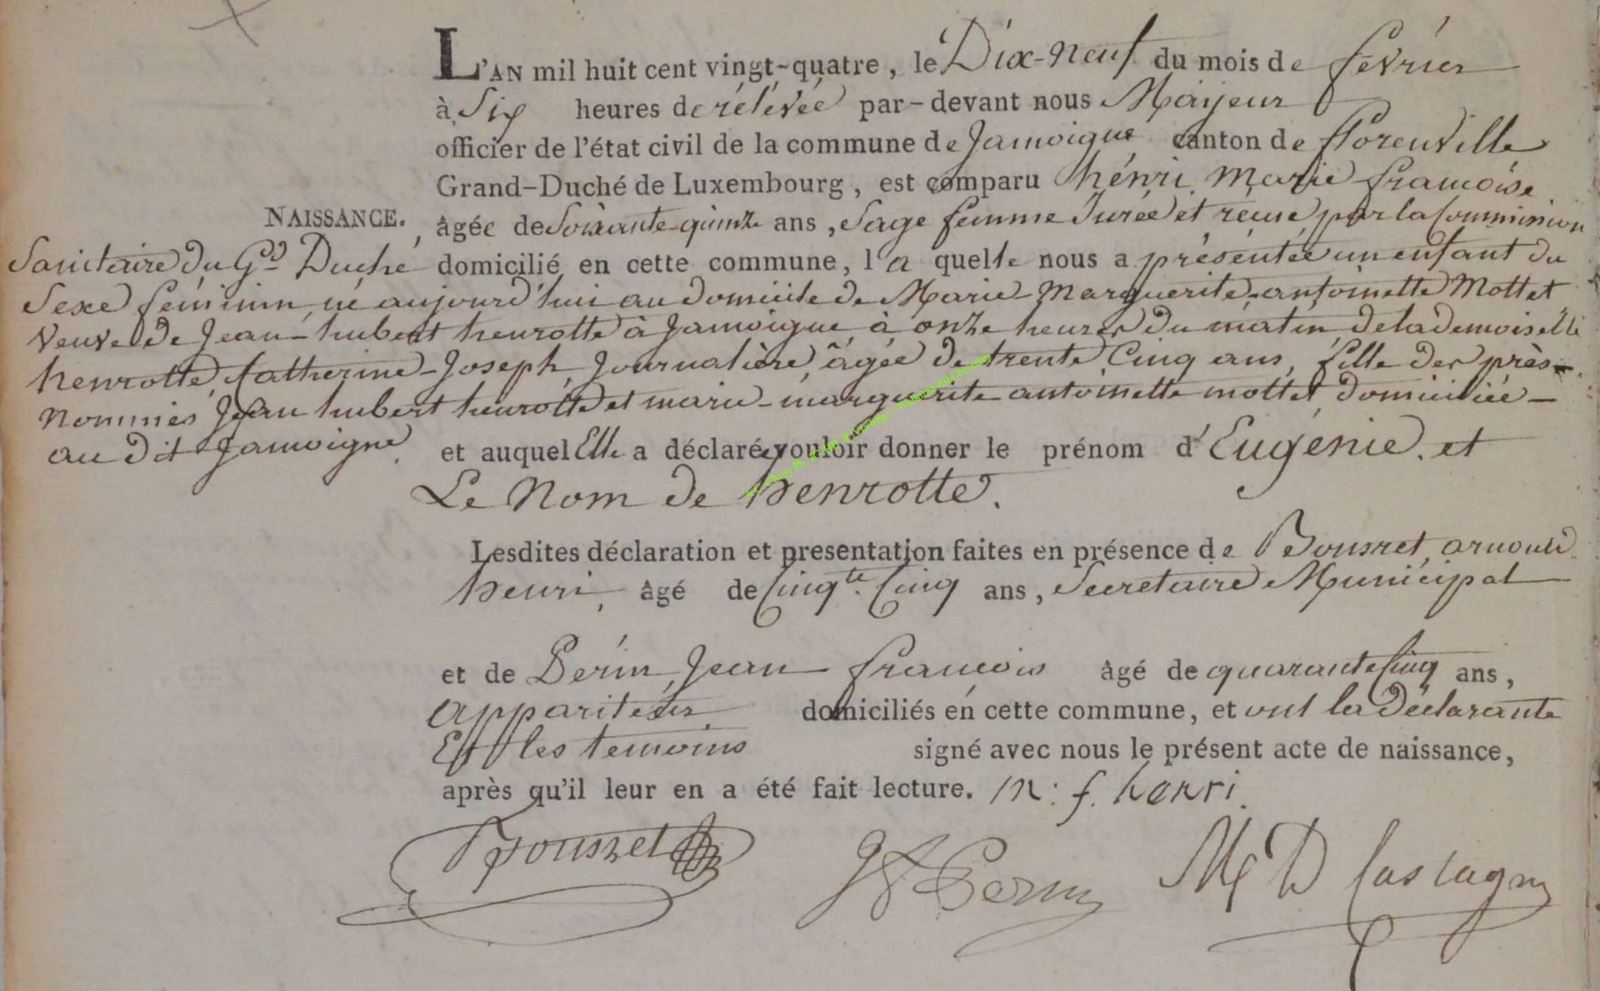 L'AN mil huit cent vingt-quatre, le Dix-neuf du mois de févrièr
à Six heures de rélévée par-devant nous Mayeur
officier de l'état civil de la commune de Jamoigne canton de florenville
Grand-Duché de Luxembourg, est comparu hénri Marie françoise
NAISSANCE. âgée de Soixante-quinze ans, Sage femme Jurée et réçue par la Commission
Sanitaire du Gd Duché domicilié en cette commune, la quelle nous a présentée un enfant du
Sexe féminin, né aujourd'hui au domicile de Marie-Marguerite-antoinette Mottet
Veuve de Jean-hubert henrotte à Jamoigne à onze heures du matin de la demoiselle
henrotte Catherine-Joseph Journalière, âgée de trente Cinq ans, fille des près-
nommés Jean hubert henrotte et marie-marguerite antoinette mottet domiciliée
au dit Jamoigne et auquel Elle a déclaré vouloir donner le prénom d'Eugénie. et
Le Nom de henrotte.
Lesdites déclaration et presentation faites en présence de Bousret arnould
henri, âgé de Cinqte Cinq ans, Secretaire Municipal
et de Perin, Jean françois âgé de quarante Cinq ans,
appariteur domiciliés en cette commune, et ont la déclarante
Et les temoins signé avec nous le présent acte de naissance,
après qu'il leur en a été fait lecture. m: f. henri.
Bousret JF Perin